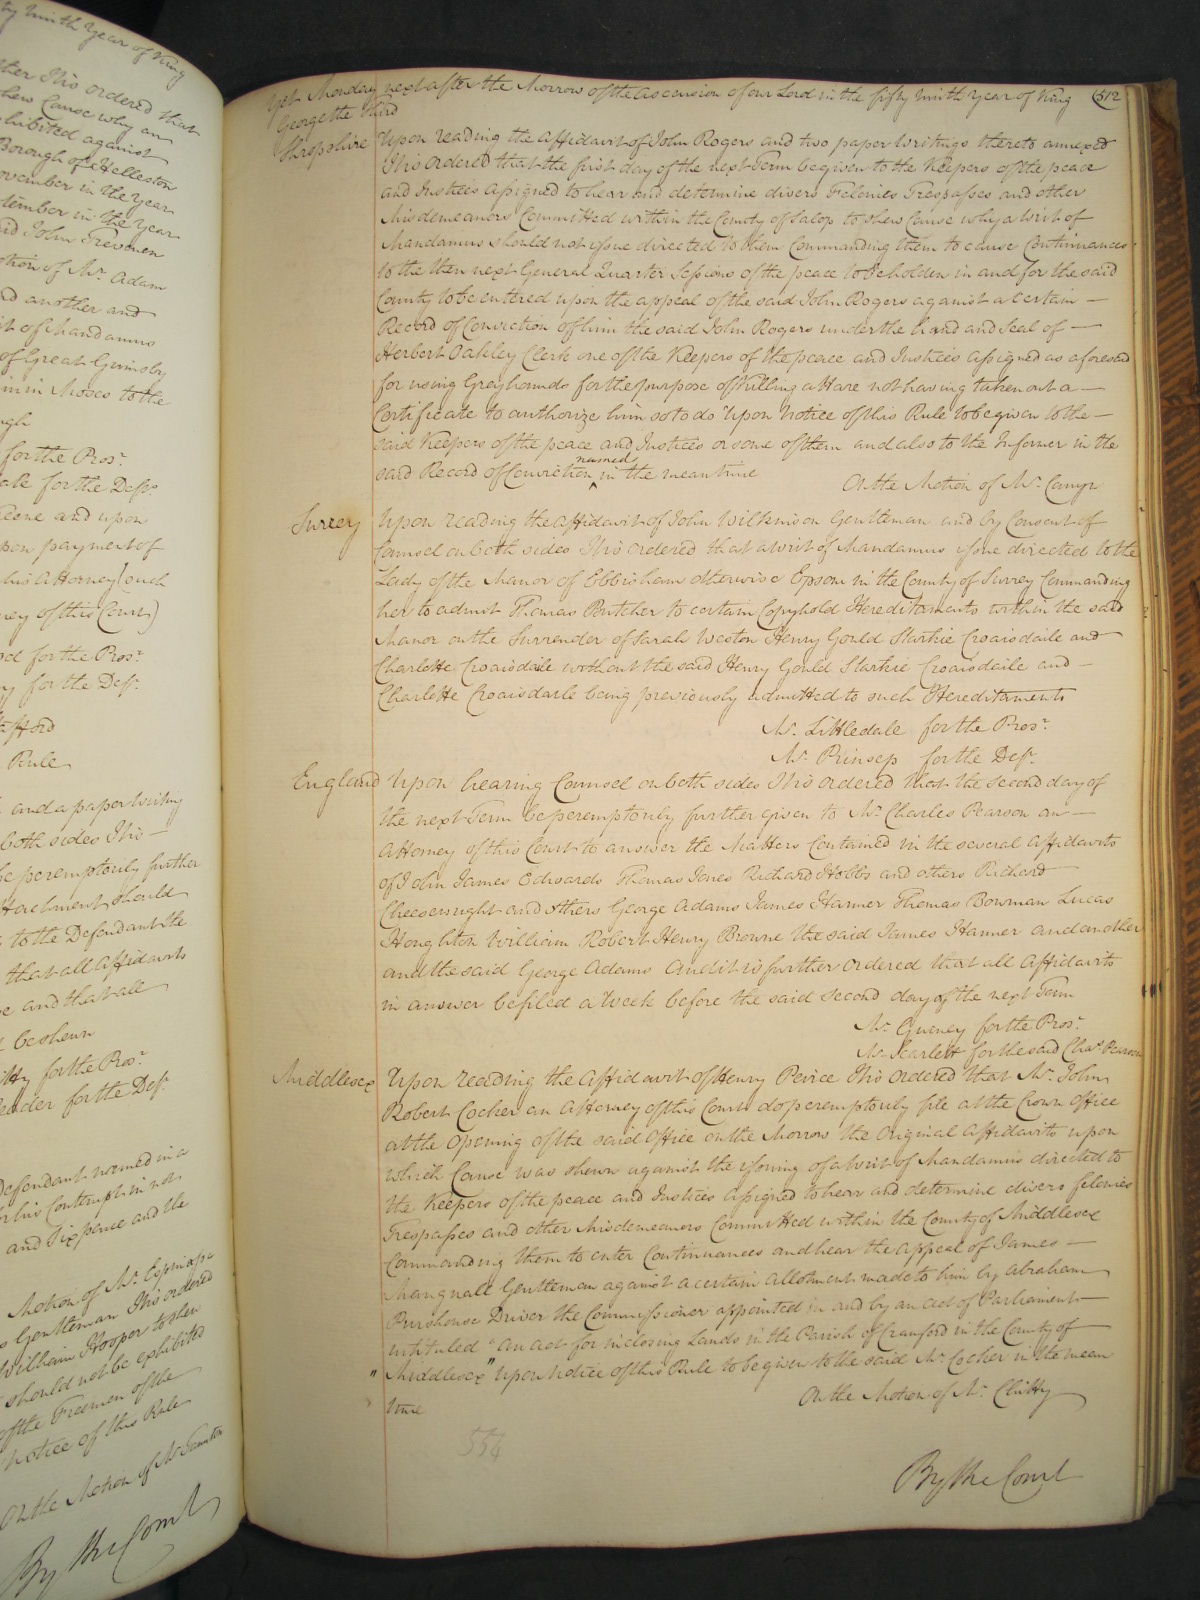 ty ninth Year of King
ther It is ordered that
shew Cause why an
hibited against
Borough of Helleston
ovember in the Year
tember in the Year
id John Trevenen
otion of Mr. Adam
nd another and
it of Mandamus
of Great Grimsby
min Moses to the
ugh
for the Prosr.
ale for the Deft.
eene and upon
pon payment of
his Attorney (such
ney of this Court)
od for the Prosr.
y for the Deft.
afford
Rule
and a paper Writing
both sides It is
be peremptorily further
ttachment should
to the Defendant the
that all Affidavits
e and that all
be shewn
itty for the Prosr.
eader for the Deft.
Defendant named in a
or his Contempt in not
and Sixpence and the
Motion of Mr. Espinasse
Gentleman It is ordered
William Hooper to shew
should not be exhibited
of the Freemen of the
Notice of this Rule
On the Motion of Mr. Taunton
By the Court
Yet Monday next after the Morrow of the Ascension of our Lord in the fifty ninth Year of King 512
George the Third
Shropshire Upon reading the Affidavit of John Rogers and two paper Writings thereto annexed
It is Ordered that the first day of the next Term be given to the Keepers of the peace
and Justices Assigned to hear and determine divers Felonies Trespasses and other
Misdemeanors Committed within the County of Salop to shew Cause why a Writ of
Mandamus should not issue directed to them Commanding them to cause Continuances
to the then next General Quarter Sessions of the peace to be holden in and for the said
County to be entered upon the appeal of the said John Rogers against a certain —
Record of Conviction of him the said John Rogers under the hand and Seal of —
Herbert Oakley Clerk one of the Keepers of the peace and Justices Assigned as aforesaid
for using Greyhounds for the purpose of killing a Hare not having taken out a —
Certificate to authorize him so to do Upon Notice of this Rule to be given to the —
said Keepers of the peace and Justices or some of them and also to the Informer in the
said Record of Conviction ^named in the mean time
On the Motion of Mr.
Surrey Upon reading the Affidavit of John Wilkinson Gentleman and by Consent of
Counsel on both sides It is ordered that a Writ of Mandamus issue directed to the
Lady of the Manor of Ebbisham otherwise Epsom in the County of Surrey Commanding
her to admit Thomas Butcher to certain Copyhold Hereditaments within the said
Manor on the Surrender of Sarah Weston Henry Gould Starkie Croaisdaile and
Charlotte Croaisdaile without the said Henry Gould Starkie Croaisdaile and —
Charlotte Croaisdaile being previously admitted to such Hereditaments
Mr. Littledale for the Prosr.
Mr. Prinsep for the Deft.
England Upon hearing Counsel on both sides It is ordered that the Second day of
the next Term be peremptorily further given to Mr. Charles Pearson an —
Attorney of this Court to answer the Matters Contained in the several Affidavits
of John James Edwards Thomas Jones Richard Hobbs and others Richard
Cheesewright and others George Adams James Hanner Thomas Bowman Lucas
Houghton William Robert Henry Browne the said James Hanner and another
and the said George Adams And it is further Ordered that all Affidavits
in answer be filed a Week before the said Second day of the next Term
Mr. Gurney for the Prosr.
Mr. Scarlett for the said Chas. Pearson
Middlesex Upon reading the Affidavit of Henry Peirce It is Ordered that Mr. John
Robert Cocker an Attorney of this Court do peremptorily file at the Crown Office
at the Opening of the said Office on the Morrow the Original Affidavits upon
which Cause was shewn against the issuing of a Writ of Mandamus directed to
the Keepers of the peace and Justices Assigned to hear and determine divers felonies
Trespasses and other Misdemeanors Committed within the County of Middlesex
Commanding them to enter Continuances and hear the Appeal of James —
Mangnall Gentleman against a certain Allotment made to him by Abraham
Purshouse Driver the Commissioner appointed in and by an Act of Parliament —
intituled "An Act for inclosing Lands in the Parish of Cranford in the County of
" Middlesex" Upon Notice of this Rule to be given to the said Mr. Cocker in the mean
time
On the Motion of Mr. Chitty
554
By the Court